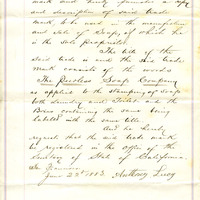 mark and hereby furnish a copy
and description of said trade
mark to be used in the manufacture
and sale of Soaps, of which he
is the Sole Proprietor.
The title of the
said trade is and the said trade
mark consists of the words
The Peerless Soap Company
as applied to the stamping of soap
both Laundry and Toilet and the
Boxes containing the same being
labeled with the same title.
And he hereby
request that the said trade mark
be registered in the office of the
Secretary of State of California.
San Francisco
June 23d 1883 Anthony